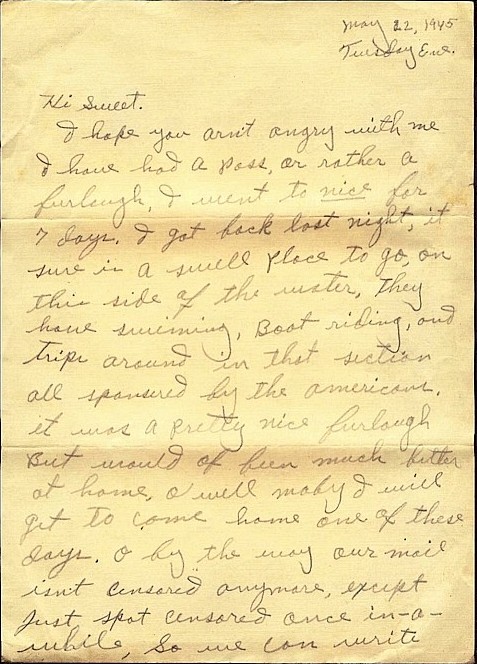 May 22, 1945
Tuesday Eve.
Hi Sweet.
I hope you arn't angry with me
I have had a pass, or rather a
furlough, I went to nice for
7 days. I got back last night, it
sure is a swell place to go, on
this side of the water, They
have swiming, Boat riding, and
trips around in that section
all sponsered by the americans.
it was a pretty nice furlough
But would of been much better
at home, o well maby I will
get to come home one of these
days. o by the way our mail
isn't censored anymore, except
Just spot censored once in-a-
while, So we can write